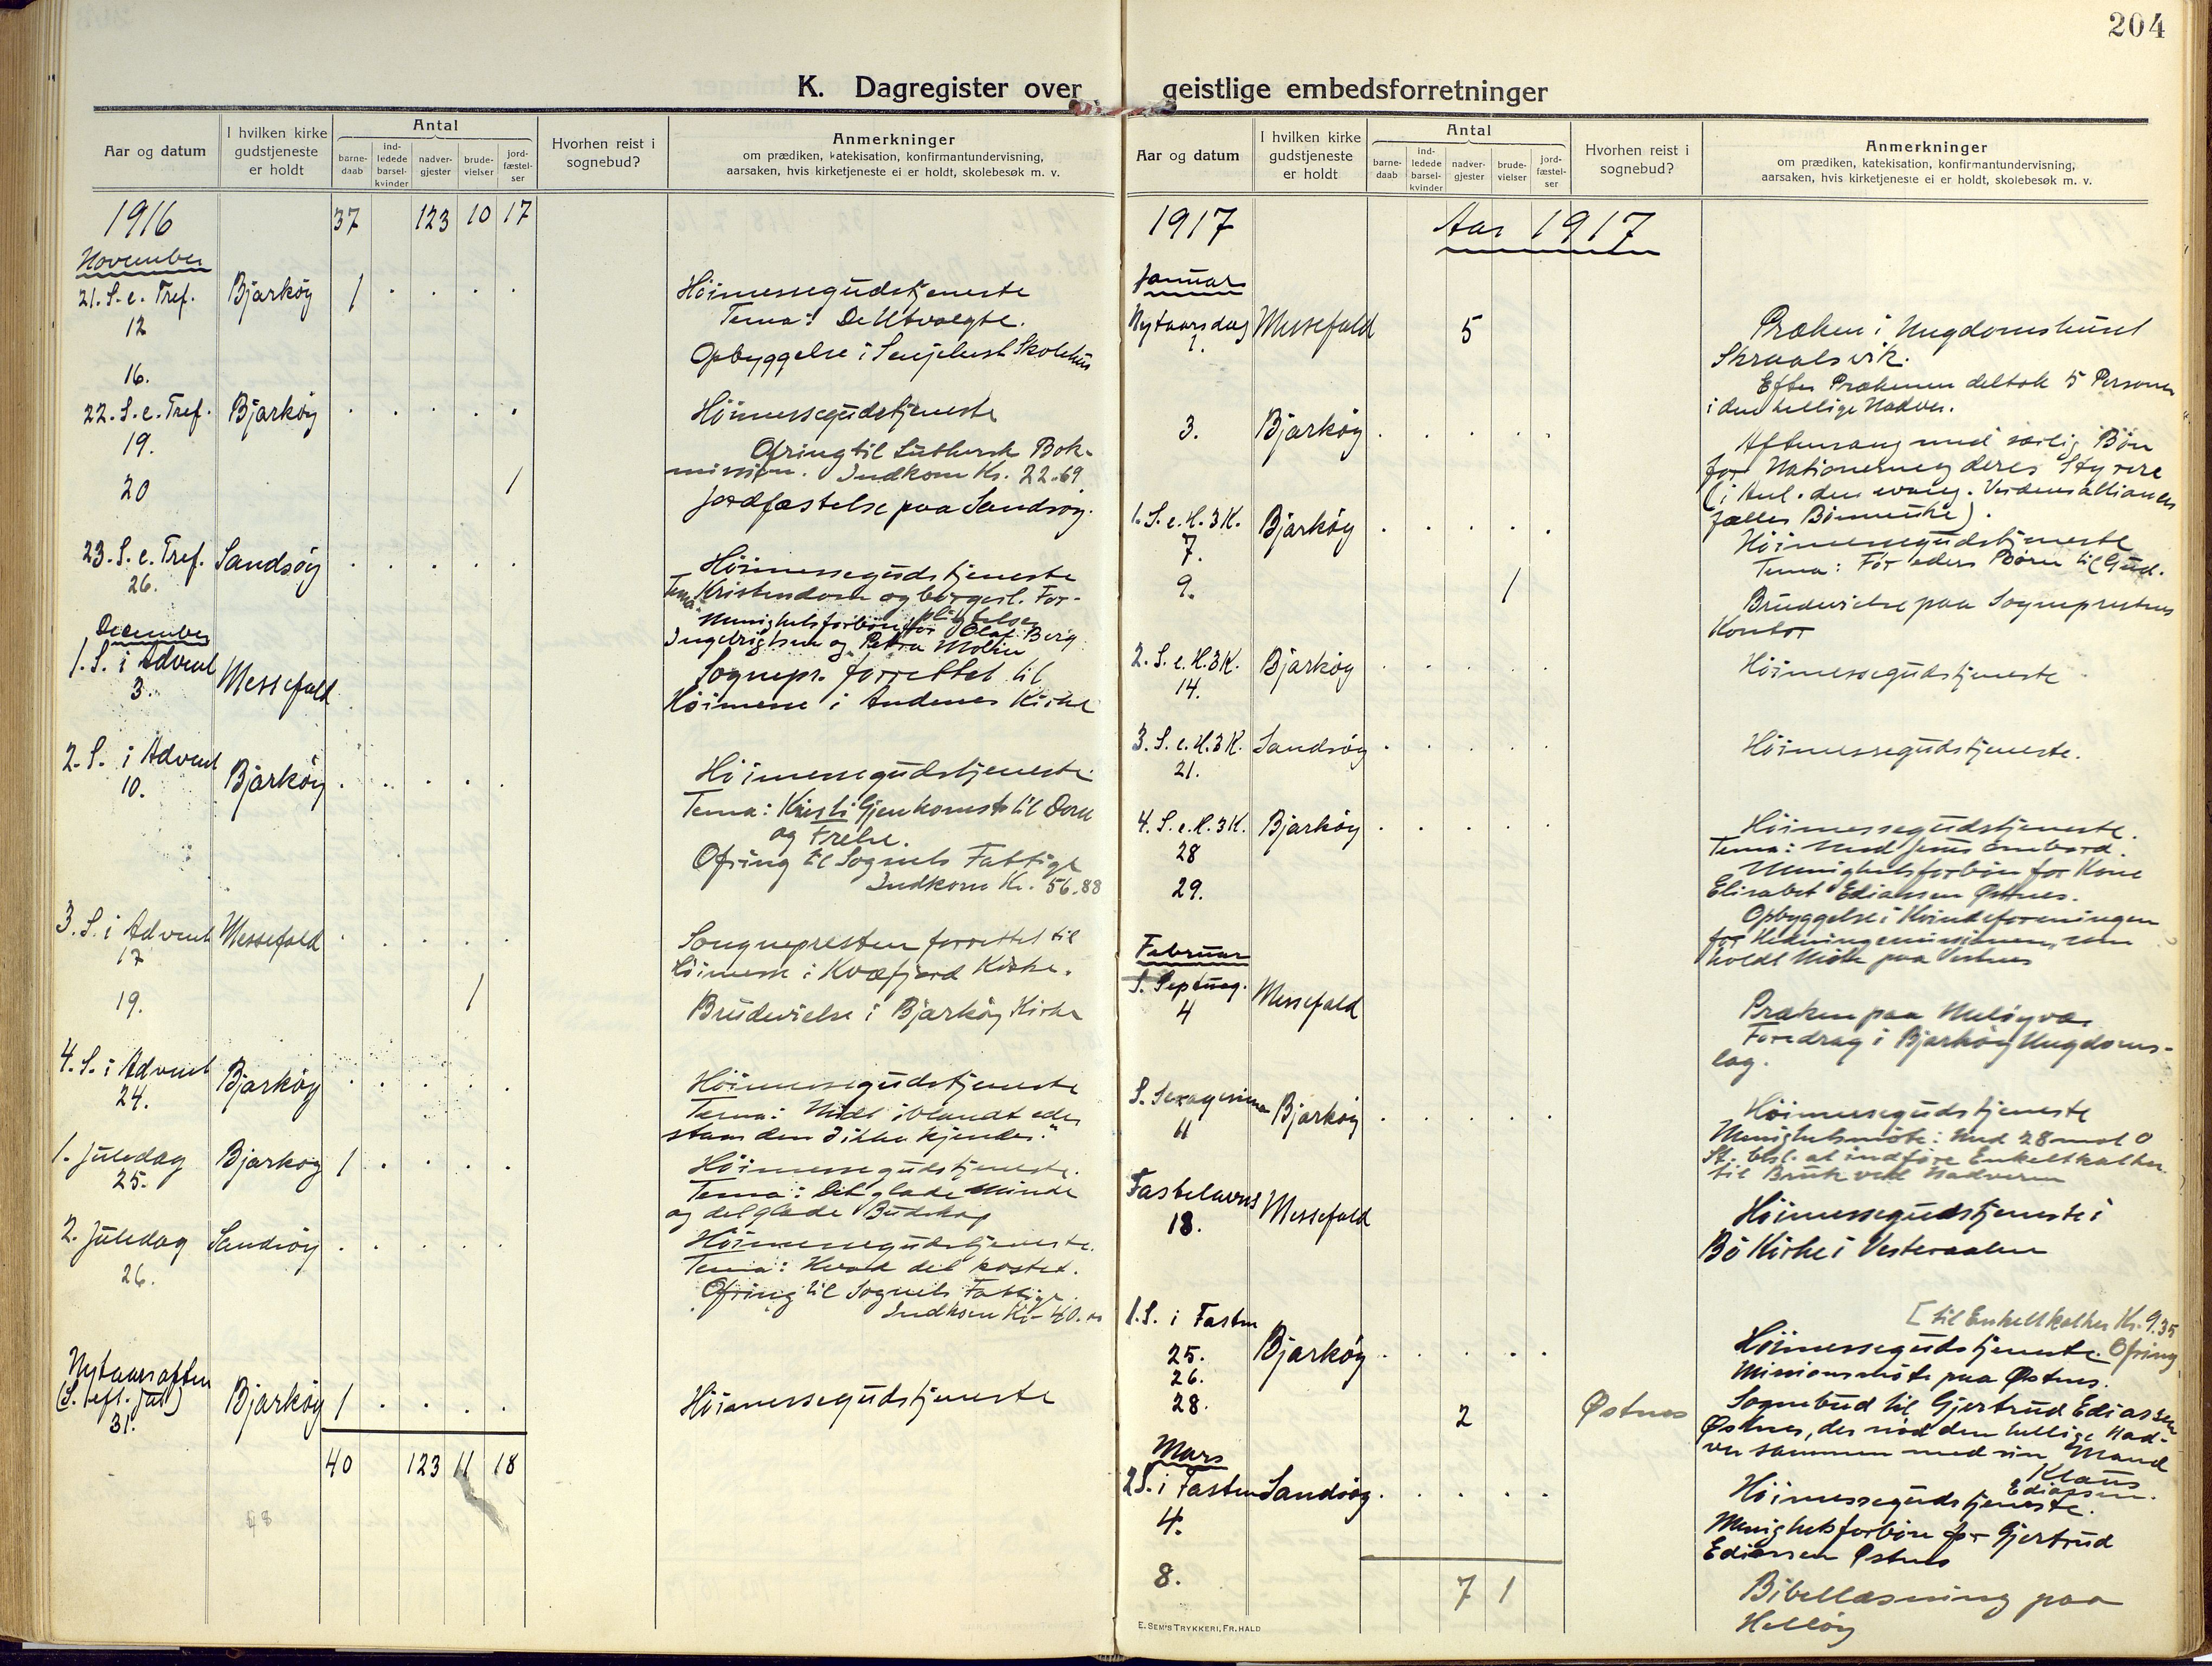 204
K. Dagregister over geistlige embedsforretninger
Aar og datum
I hvilken kirke gudstjeneste er holdt
Antal
barne-daab
ind-ledede barsel-kvinder
nadver-gjester
brude-vielser
jord-fæstel-ser
Hvorhen reist i sognebud?
Anmerkninger
om prædiken, katekisation, konfirmantundervisning,
aarsaken, hvis kirketjeneste ei er holdt, skolebesøk m. v.
1916 37 123 10 17
November
21. S. e. Tref. Bjarköy 1 . . . . Höimessegudstjeneste
12 Tema: De Utvalgte.
16. Opbyggelse i Skolehus
22. S. e. Tref. Bjarköy . . . . . Höimessegudstjeneste
19. Ofring til Luthersk Bok-
mission. Indkom Kr. 22.69
20 1 Jordfæstelse paa Sandsöy.
23. S. e. Tref. Sandsöy . . . . . Höimessegudstjeneste
26. Tema: Kristendom og borgerl. For-
pligtelser
Menighetsforbön for Olaf Berg
Ingebrigtsen og Petra Molin
December
1. S. i Advent Messefald Sognepr. forrettet til
3. Höimesse i Andenes Kirke
2. S. i Advent Bjarköy . . . . . Höimessegudstjeneste
10. Tema: Kristi Gjenkomst til Dom
og Frelse.
Ofring til Sognets Fattige
Indkom Kr. 56.88
3. S. i Advent Messefald . . . . . Songnepresten forrettet til
17 Höimesse i Kvæfjord Kirke.
19. 1 Brudevielse i Bjarköy Kirke
4. S. i Advent Bjarköy . . . . . Höimessegudstjeneste
24. Tema: Midt iblandt eder
staar den I ikke kjender."
1. Juledag Bjarköy 1 . . . . Höimessegudstjeneste.
25. Tema: Det glade Minde
og det glade Budskap
2. Juledag Sandsöy . . . . . Höimessegudstjeneste.
26. Tema: Hvad det kostet.
Ofring til Sognets Fattige.
Indkom Kr. 40.
Nytaarsaften
(S. eft. Jul) Bjarköy 1 . . . . Höimessegudstjeneste
31.
40 123 11 18
48
Aar og datum
I hvilken kirke gudstjeneste er holdt
Antal
barne-daab
ind-ledede barsel-kvinder
nadver-gjester
brude-vielser
jord-fæstel-ser
Hvorhen reist i sognebud?
Anmerkninger
om prædiken, katekisation, konfirmantundervisning,
aarsaken, hvis kirketjeneste ei er holdt, skolebesøk m. v.
1917 Aar 1917
Januar
Nytaarsdag Messefald 5 Præken i Ungdomshuset
1. Skraalsvik.
Efter Prækenen deltok 5 Personer
i den hellige Nadver.
3. Bjarköy . . . . . Aftensang med særlig Bön
for Nationerne og deres Styrere
(i Anl. den evang. Verdensalliances
fælles Bönneuke).
1. S. e. H. 3 K. Bjarköy . . . . . Höimessegudstjeneste
7. Tema: Før eders Börn til Gud.
9. 1 Brudevielse paa Sogneprestens
Kontor
2. S. e. H. 3 K. Bjarköy . . . . . Höimessegudstjeneste
14.
3. S. e. H. 3 K. Sandsöy . . . . . Höimessegudstjeneste.
21.
4. S. e. H. 3 K. Bjarköy . . . . . Höimessegudstjeneste.
28 Tema: Med Jesus ombord.
Menighetsforbön for Kone
Elisabet Ediassen Østnes.
29. Opbyggelse i Kvindeforeningen
for Hedningemissionen, som
holdt Möte paa Vestnes
Februar
S. Septuag. Messefald Præken paa Meløyvær
4 Foredrag i Bjarköy Ungdoms-
lag.
S. Sexagesima Bjarköy . . . . . Höimessegudstjeneste
11 Menighetsmöte: Med 28 mot 0
St. besl. at indføre Enkeltkalker
til Bruk ved Nadveren
Fastelavns Messefald Höimessegudstjeneste i
18. Bö Kirke i Vesteraalen
[til Enkeltkalker Kr. 9.35
1. S. i Fasten Bjarköy . . . . . Höimessegudstjeneste. Ofring
25.
26. Missionsmöte paa Østnes.
28. 2 Østnes Sognebud til Gjertrud Ediassen
Østnes, der nød den hellige Nad-
ver sammen med sin Mand
Klaus
Ediassen.
Mars
2 S. i Fasten Sandsöy . . . . . Höimessegudstjeneste.
4. Menighetsforbön for Gjertrud
Ediassen Østnes
8. Bibellæsning paa
Helløy
7 1
E. SEM'S TRYKKERI, FR.HALD